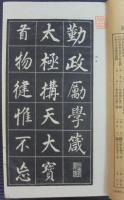 勤政勵學箴
太極構天大寶
首物健惟不忘